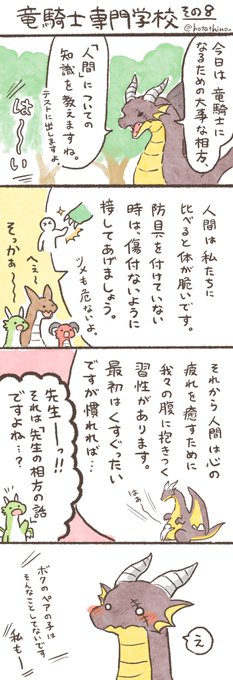 竜騎士専門学校 その8
@hotoshino_
今日は竜騎士に
なるための大事な相方、
「人間」についての
知識を教えますね。
テストに出しますよ。
は〜い
人間は私たちに
比べると体が脆いです。
防具を付けていない
時は、傷付ないように
接してあげましょう。
ツメも危ないよ。
へぇ〜
そっかぁ〜
それから人間は心の
疲れを癒すために
我々の腹に抱きつく
習性があります。
最初はくすぐったい
ですが慣れれば…
はぁ
先生ーっ!!
それは「先生の相方の話」
ですよね…?
え
ボクのペアの子は
そんなことしてないです
私もー